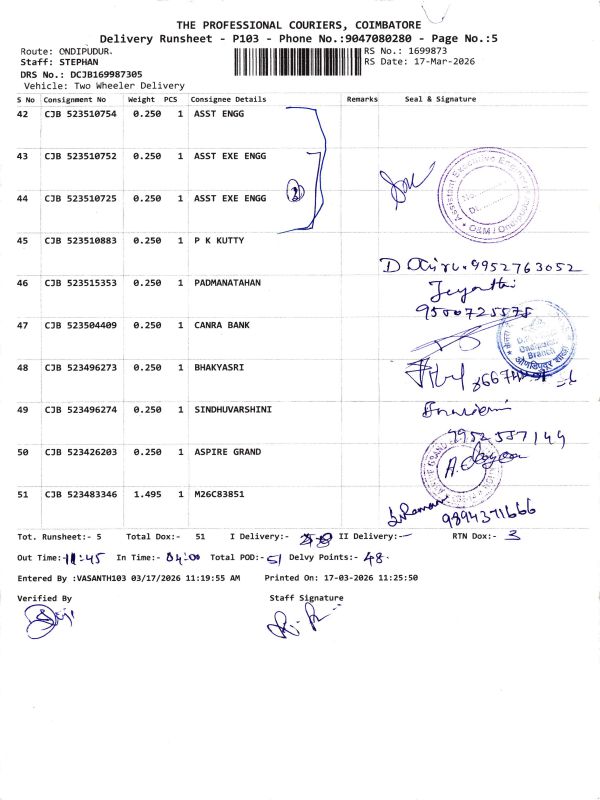 THE PROFESSIONAL COURIERS, COIMBATORE
Delivery Runsheet - P103 - Phone No.:9047080280 - Page No.:5
Route: ONDIPUDUR.
RS No.: 1699873
Staff: STEPHAN
RS Date: 17-Mar-2026
DRS No.: DCJB169987305
Vehicle: Two Wheeler Delivery
S No Consignment No Weight PCS Consignee Details Remarks Seal & Signature
42 CJB 523510754 0.250 1 ASST ENGG
43 CJB 523510752 0.250 1 ASST EXE ENGG
44 CJB 523510725 0.250 1 ASST EXE ENGG
Assistant Executive Engineer
O&M / Ondipudur
45 CJB 523510883 0.250 1 P K KUTTY
9952763052
46 CJB 523515353 0.250 1 PADMANATAHAN
Jeyanthi
9500725578
47 CJB 523504409 0.250 1 CANRA BANK
Ondipudur
Branch
48 CJB 523496273 0.250 1 BHAKYASRI
49 CJB 523496274 0.250 1 SINDHUVARSHINI
50 CJB 523426203 0.250 1 ASPIRE GRAND
9952557149
51 CJB 523483346 1.495 1 M26C83851
9894371666
Tot. Runsheet:- 5 Total Dox:- 51 I Delivery:- II Delivery:- RTN Dox:- 3
Out Time:- 11:45 In Time:- 04:00 Total POD:- 51 Delvy Points:- 48
Entered By :VASANTH103 03/17/2026 11:19:55 AM Printed On: 17-03-2026 11:25:50
Verified By Staff Signature